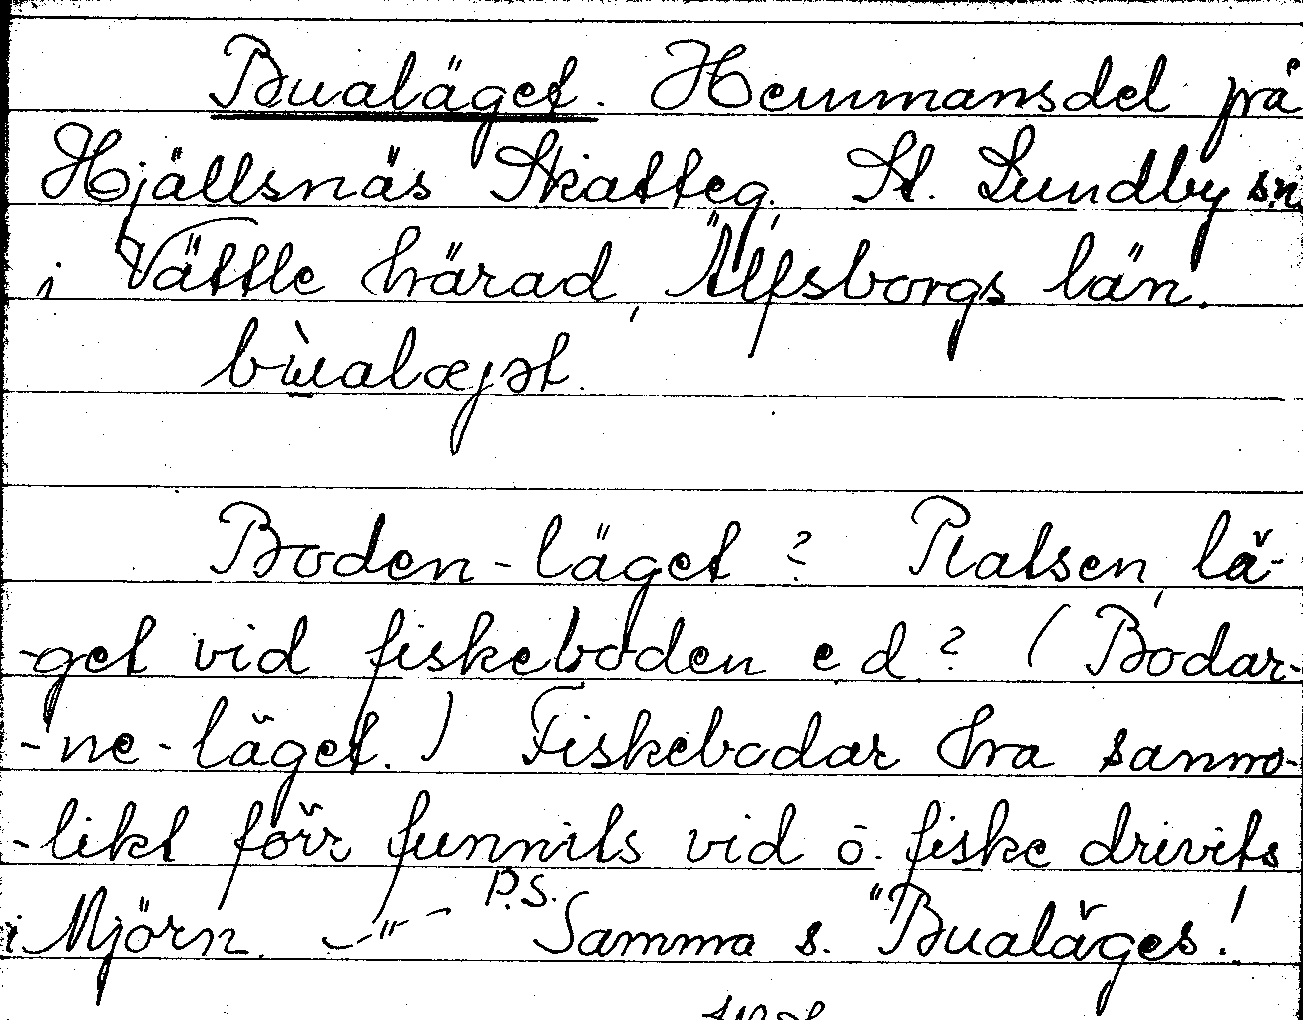 Bualäget. Hemmansdel på
Hjällsnäs Skatteg. St. Lundby sn
i Vättle härad, Älfsborgs län.
bùalæjət.
Boden-läget? Platsen, lä-
-get vid fiskeboden e.d.? (Bodar-
-ne-läget.) Fiskebodar ha sanno-
-likt förr funnits vid o. fiske drivits
i Mjörn. —"— P.S. Samma s. "Bualäges!